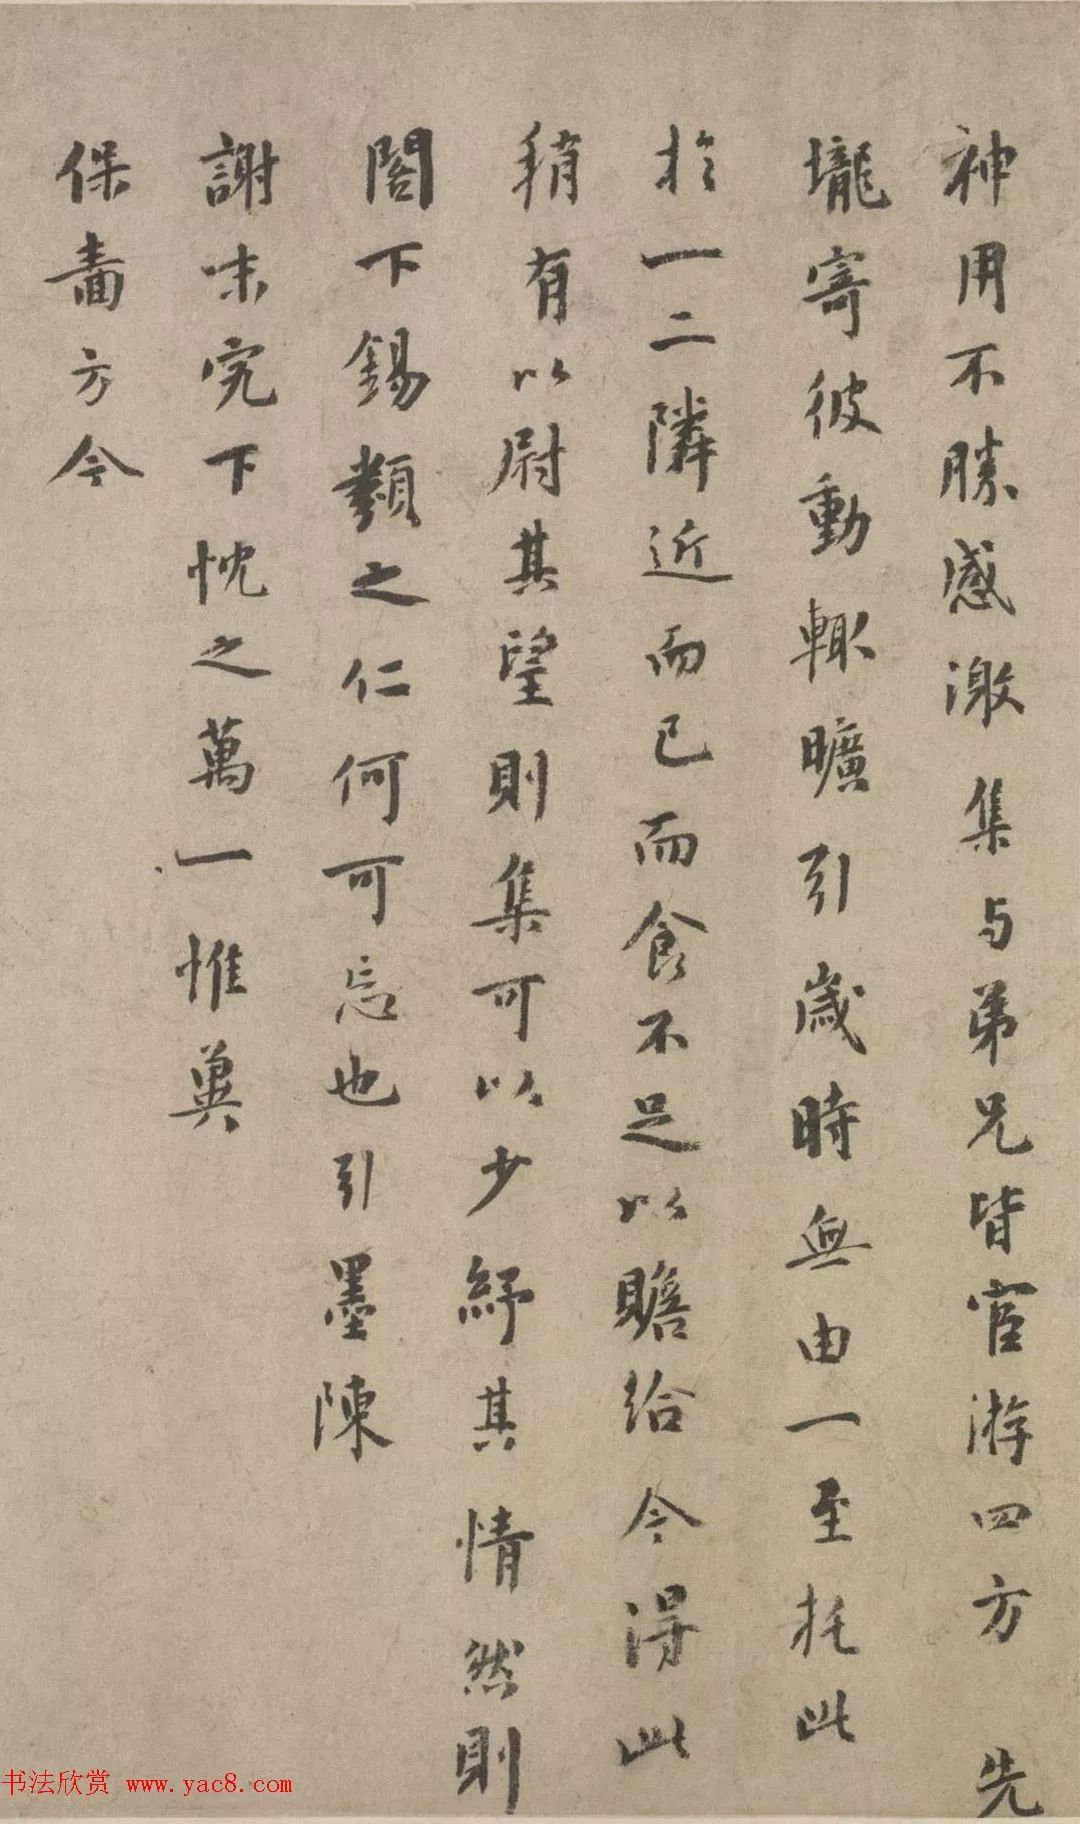 神用不勝感激集与弟兄皆宦游四方先
壠寄彼動輒曠引歲時無由一至托此
扵一二隣近而已而食不足以贍給今得此
稍有以尉其望則集可以少紓其情然則
閣下錫類之仁何可忘也引墨陳
謝未究下忱之萬一惟兾
保嗇方今
书法欣赏 www.yac8.com